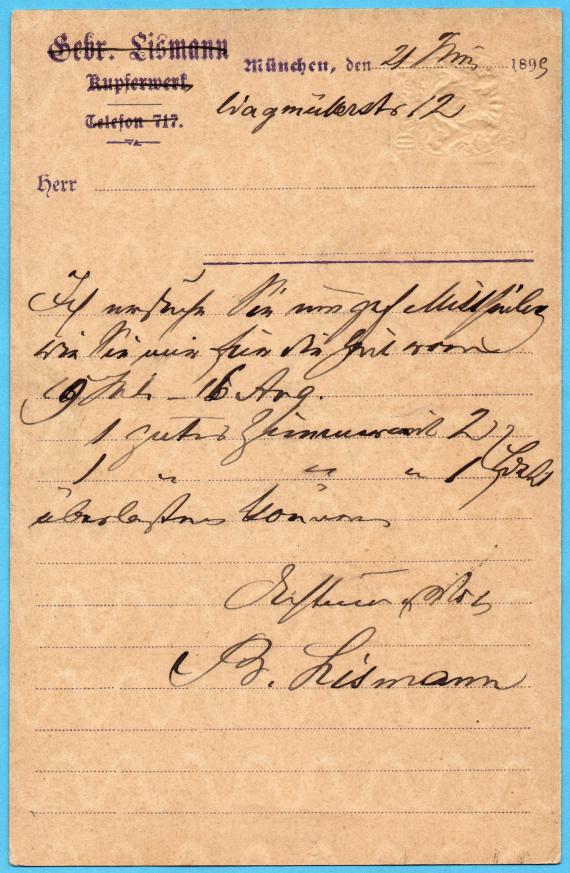 Gebr. Lismann
Kupferwerk,
Telefon 717.
München, den 21 Juni 1899
Wagmüllerstr 12
Herr
Ich ersuche Sie um gef Mittheilung
wie Sie mir für die Zeit vom
19 Juli - 16 Aug.
1 gutes Zimmer mit 2
1 " " " 1
überlassen können
B. Lismann